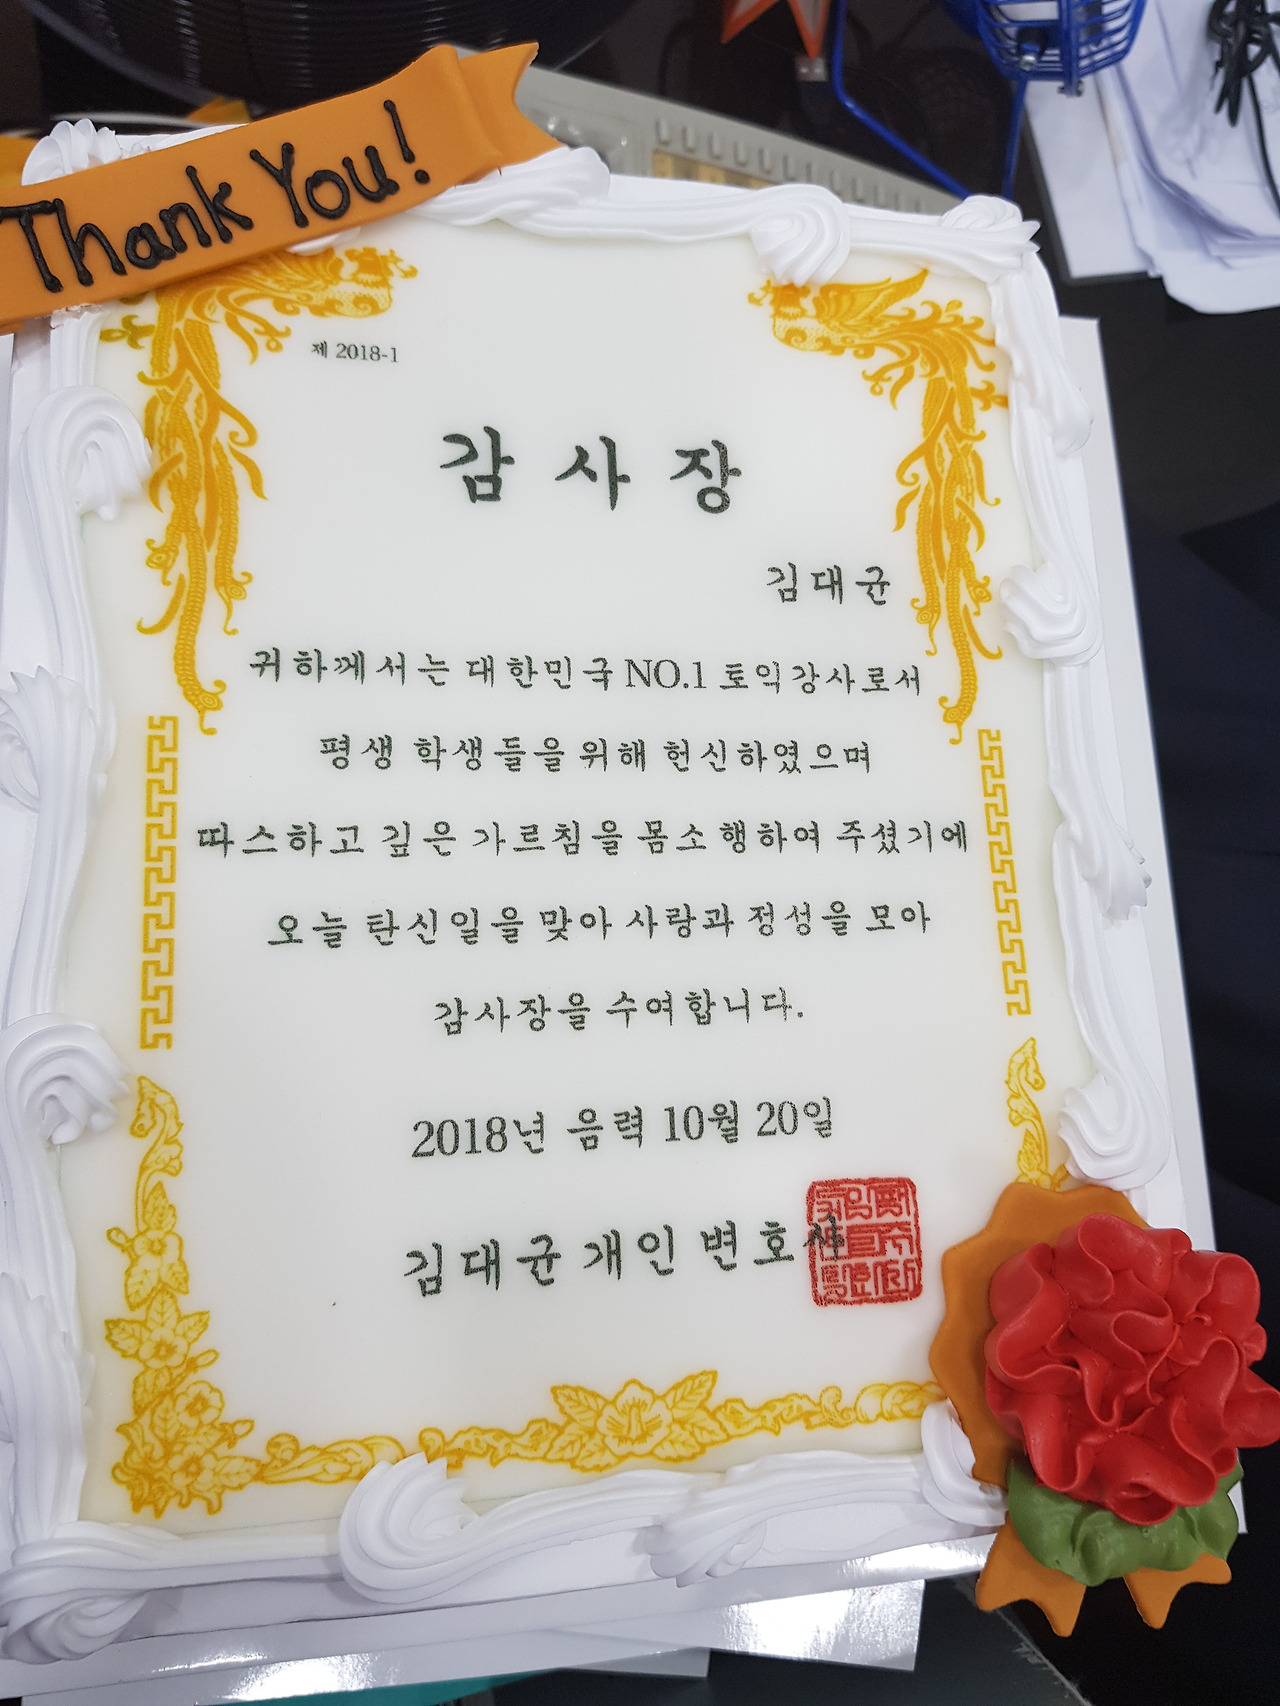 Thank You!
제 2018-1
감 사 장
김대균
귀하께서는 대한민국 NO.1 토익강사로서
평생 학생들을 위해 헌신하였으며
따스하고 깊은 가르침을 몸소 행하여 주셨기에
오늘 탄신일을 맞아 사랑과 정성을 모아
감사장을 수여합니다.
2018년 음력 10월 20일
김대균 개인 변호사